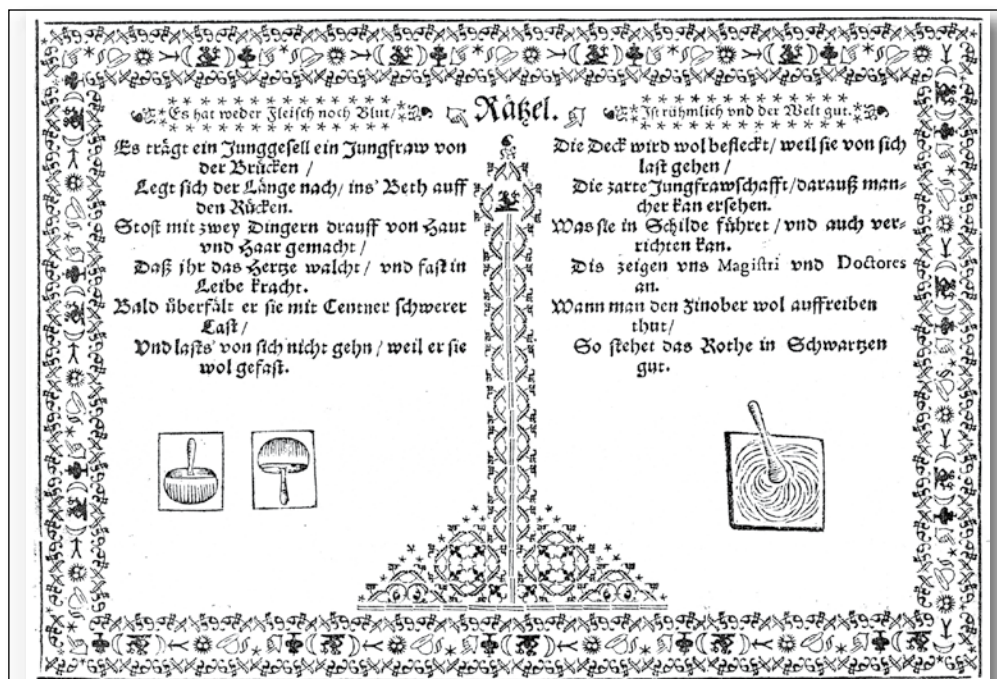 Rätzel.
Es hat weder Fleisch noch Blut/
Ist rühmlich vnd der Welt gut.
Es trägt ein Junggesell ein Jungfraw von
der Brücken /
Legt sich der Länge nach/ ins' Beth auff
den Rücken.
Stost mit zwey Dingern drauff von Haut
vnd Haar gemacht /
Daß jhr das Hertze walcht / vnd fast in
Leibe kracht.
Bald überfält er sie mit Centner schwerer
Last /
Vnd lasts' von sich nicht gehn / weil er sie
wol gefast.
Die Deck wird wol befleckt / weil sie von sich
last gehen /
Die zarte Jungfrawschafft / darauß man-
cher kan ersehen.
Was sie in Schilde führet / vnd auch ver-
richten kan.
Dis zeigen vns Magistri vnd Doctores
an.
Wann man den Zinober wol auffreiben
thut /
So stehet das Rothe in Schwartzen
gut.